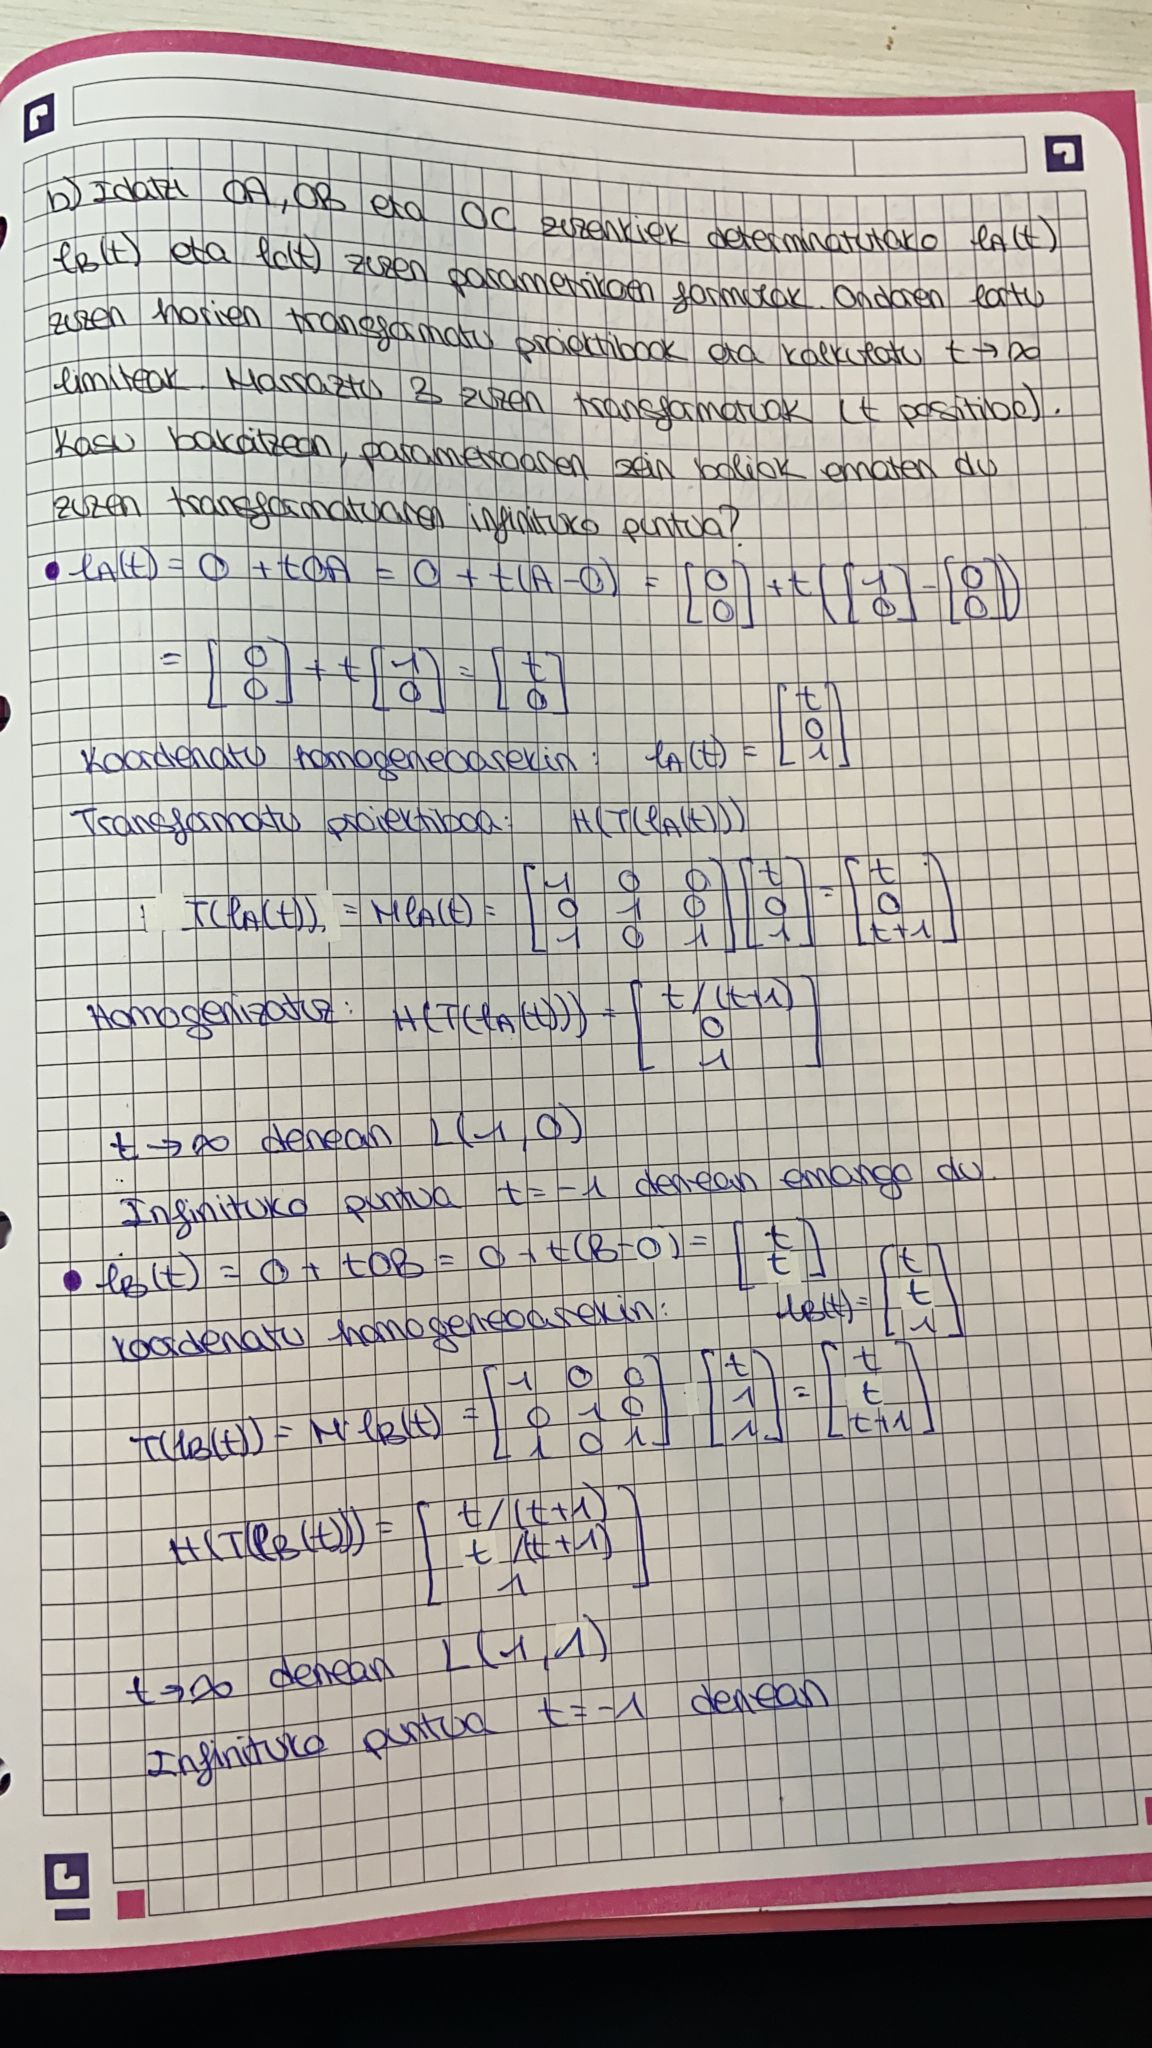 b) Idatzi OA, OB eta OC zuzenkiek determinatutako lA(t)
lB(t) eta lC(t) zuzen parametrikoen formulak. Ondoren lortu
zuzen horien transformatu proiektiboak eta kalkulatu t→∞
limiteak. Marraztu 3 zuzen transformatuak (t positibo).
Kasu bakoitzean, parametroaren zein baliok ematen du
zuzen transformatuaren infinituko puntua?
• lA(t) = O + tOA = O + t(A-O) = [0 0] + t([1 0] - [0 0])
= [0 0] + t[1 0] = [t 0]
Koordenatu homogeneoarekin: lA(t) = [t 0 1]
Transformatu proiektiboa: H(T(lA(t)))
: T(lA(t)) = MlA(t) = [1 0 0 0 1 0 1 0 1] [t 0 1] = [t 0 t+1]
Homogenizatuz: H(T(lA(t))) = [t/(t+1) 0 1]
t→∞ denean L(1,0)
Infinituko puntua t=-1 denean emango du.
• lB(t) = O + tOB = O + t(B-O) = [t t]
koordenatu homogeneoarekin: lB(t) = [t t 1]
T(lB(t)) = M·lB(t) = [1 0 0 0 1 0 1 0 1] · [t 1 1] = [t t t+1]
H(T(lB(t))) = [t/(t+1) t/(t+1) 1]
t→∞ denean L(1,1)
Infinituko puntua t=-1 denean